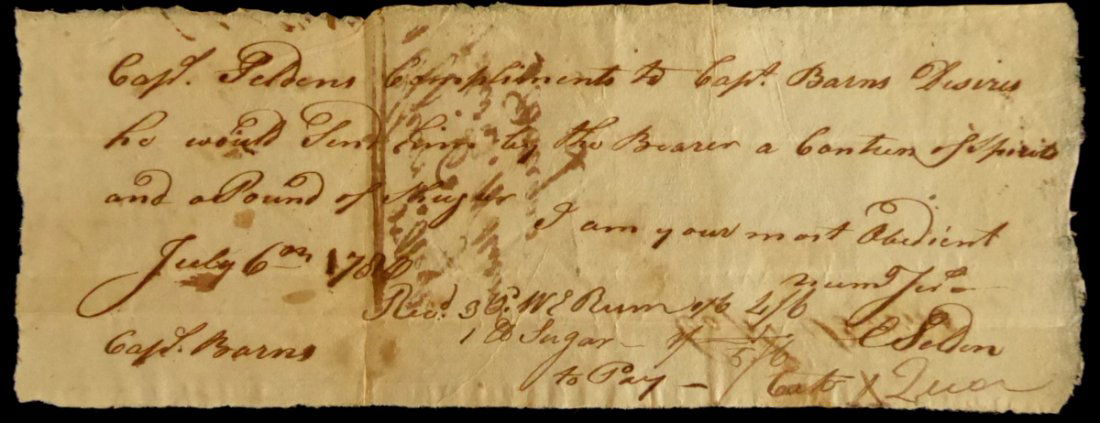 Capt. Seldens Compliments to Capt. Barns Desires
he would Send him by the Bearer a Canteen of Spirits
and a Pound of Shuger
I am your most Obedient
July 6th 178
Humle Servt
Recd. 3 Gs. W I Rum 1/6 4/6
1 lb Sugar - 1/ 1/
C Selden
Capt. Barns
5/6
to Pay -